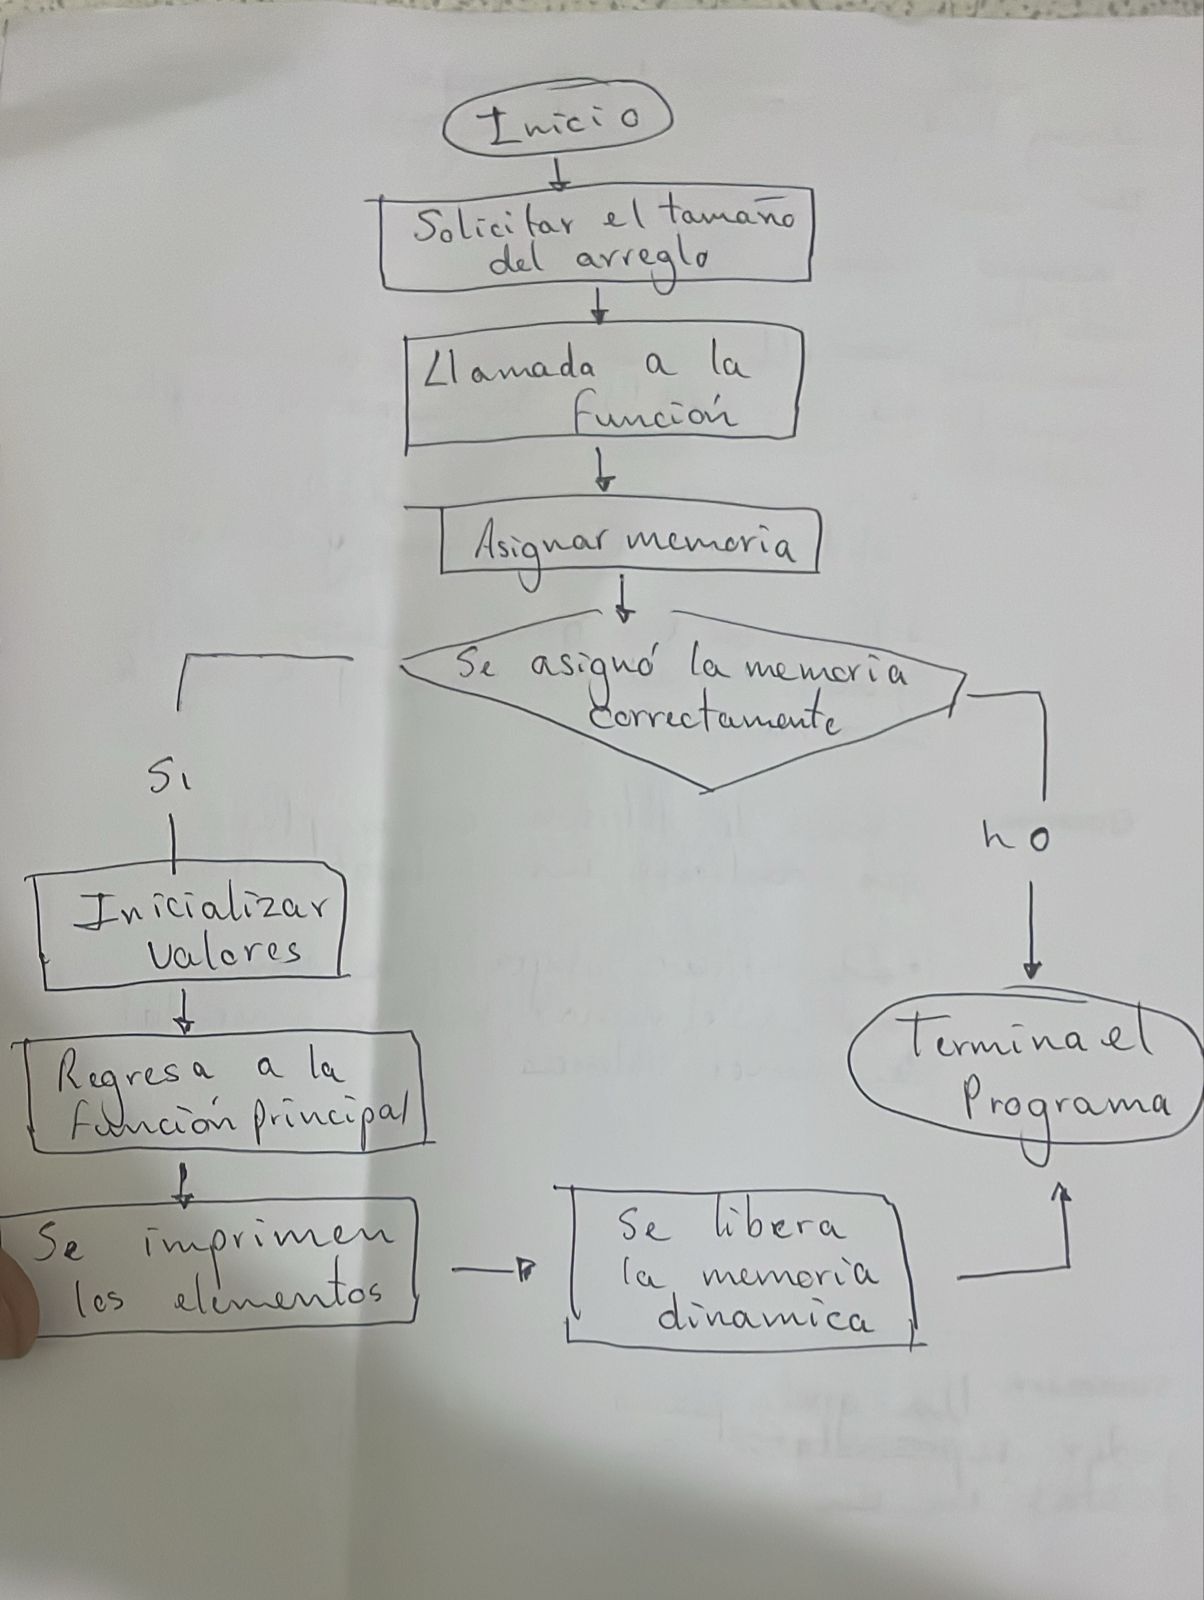 Inicio
Solicitar el tamaño
del arreglo
Llamada a la
función
Asignar memoria
Se asignó la memoria
correctamente
Si
no
Inicializar
valores
Regresa a la
función principal
Se imprimen
los elementos
Se libera
la memoria
dinamica
Termina el
Programa